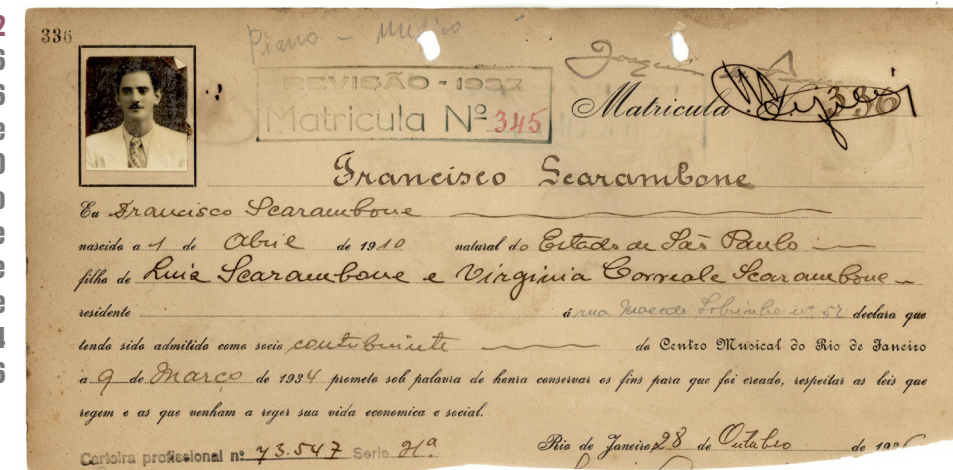 336
Piano –
REVISÃO - 1937
Matricula Nº 345
Matricula 336
Francisco Scarambone
Eu Francisco Scarambone
nascido a 1 de Abril de 1910 natural do Estado de São Paulo
filho de Luiz Scarambone e Virginia Correale Scarambone
residente á rua Macedo Sobrinho nº 52 declara que
tendo sido admitido como socio contribuinte do Centro Musical do Rio de Janeiro
a 9 de Março de 1934 prometo sob palavra de honra conservar os fins para que foi creado, respeitar as leis que
regem e as que venham a reger sua vida economica e social.
Rio de Janeiro, 28 de Outubro de 193
Carteira profissional nº 73.547 Serie 21ª
2
6
6
e
0
o
e
e
e
4
6